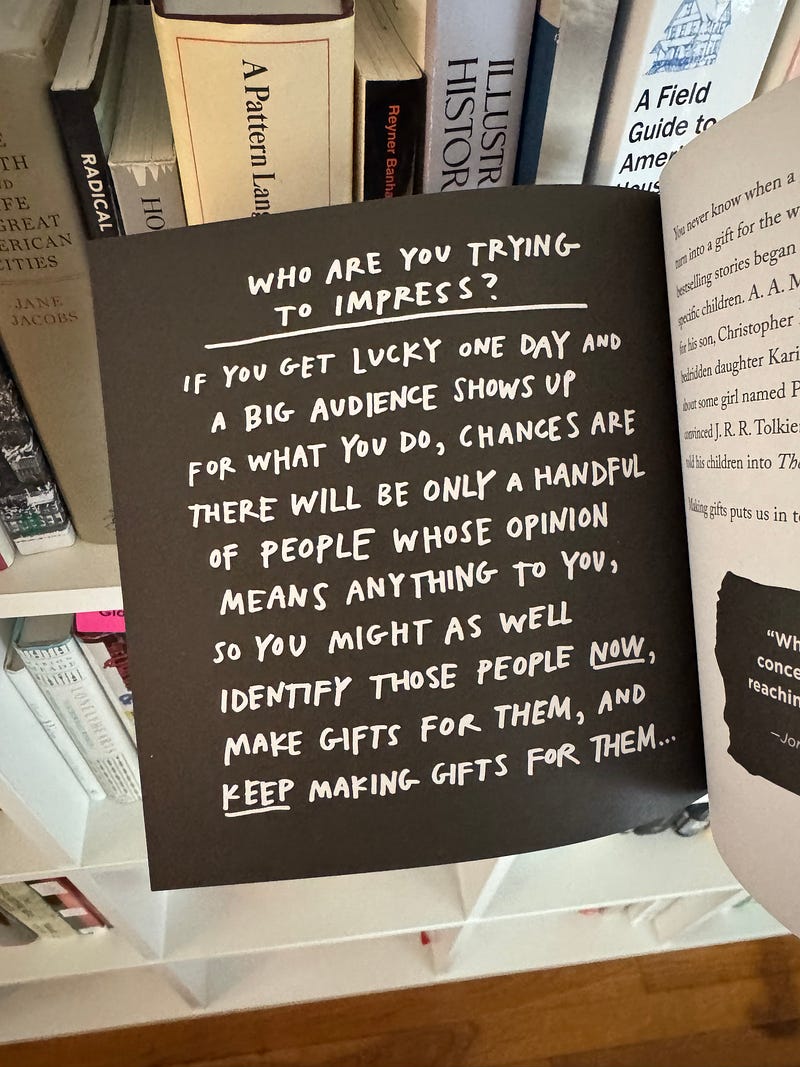 TH
ND
FE
GREAT
ERICAN
CITIES
JANE
JACOBS
RADICAL
HO
A Pattern Lang
Reyner Banha
ILLUSTR
HISTOR
A Field
Guide to
Ameri
WHO ARE YOU TRYING
TO IMPRESS?
IF YOU GET LUCKY ONE DAY AND
A BIG AUDIENCE SHOWS UP
FOR WHAT YOU DO, CHANCES ARE
THERE WILL BE ONLY A HANDFUL
OF PEOPLE WHOSE OPINION
MEANS ANYTHING TO YOU,
SO YOU MIGHT AS WELL
IDENTIFY THOSE PEOPLE NOW,
MAKE GIFTS FOR THEM, AND
KEEP MAKING GIFTS FOR THEM...
You never know when a
turn into a gift for the w
bestselling stories began
specific children. A. A. M
for his son, Christopher
bedridden daughter Kari
about some girl named P
convinced J. R. R. Tolkie
told his children into The
Making gifts puts us in t
“Wh
conce
reachin
—Jor